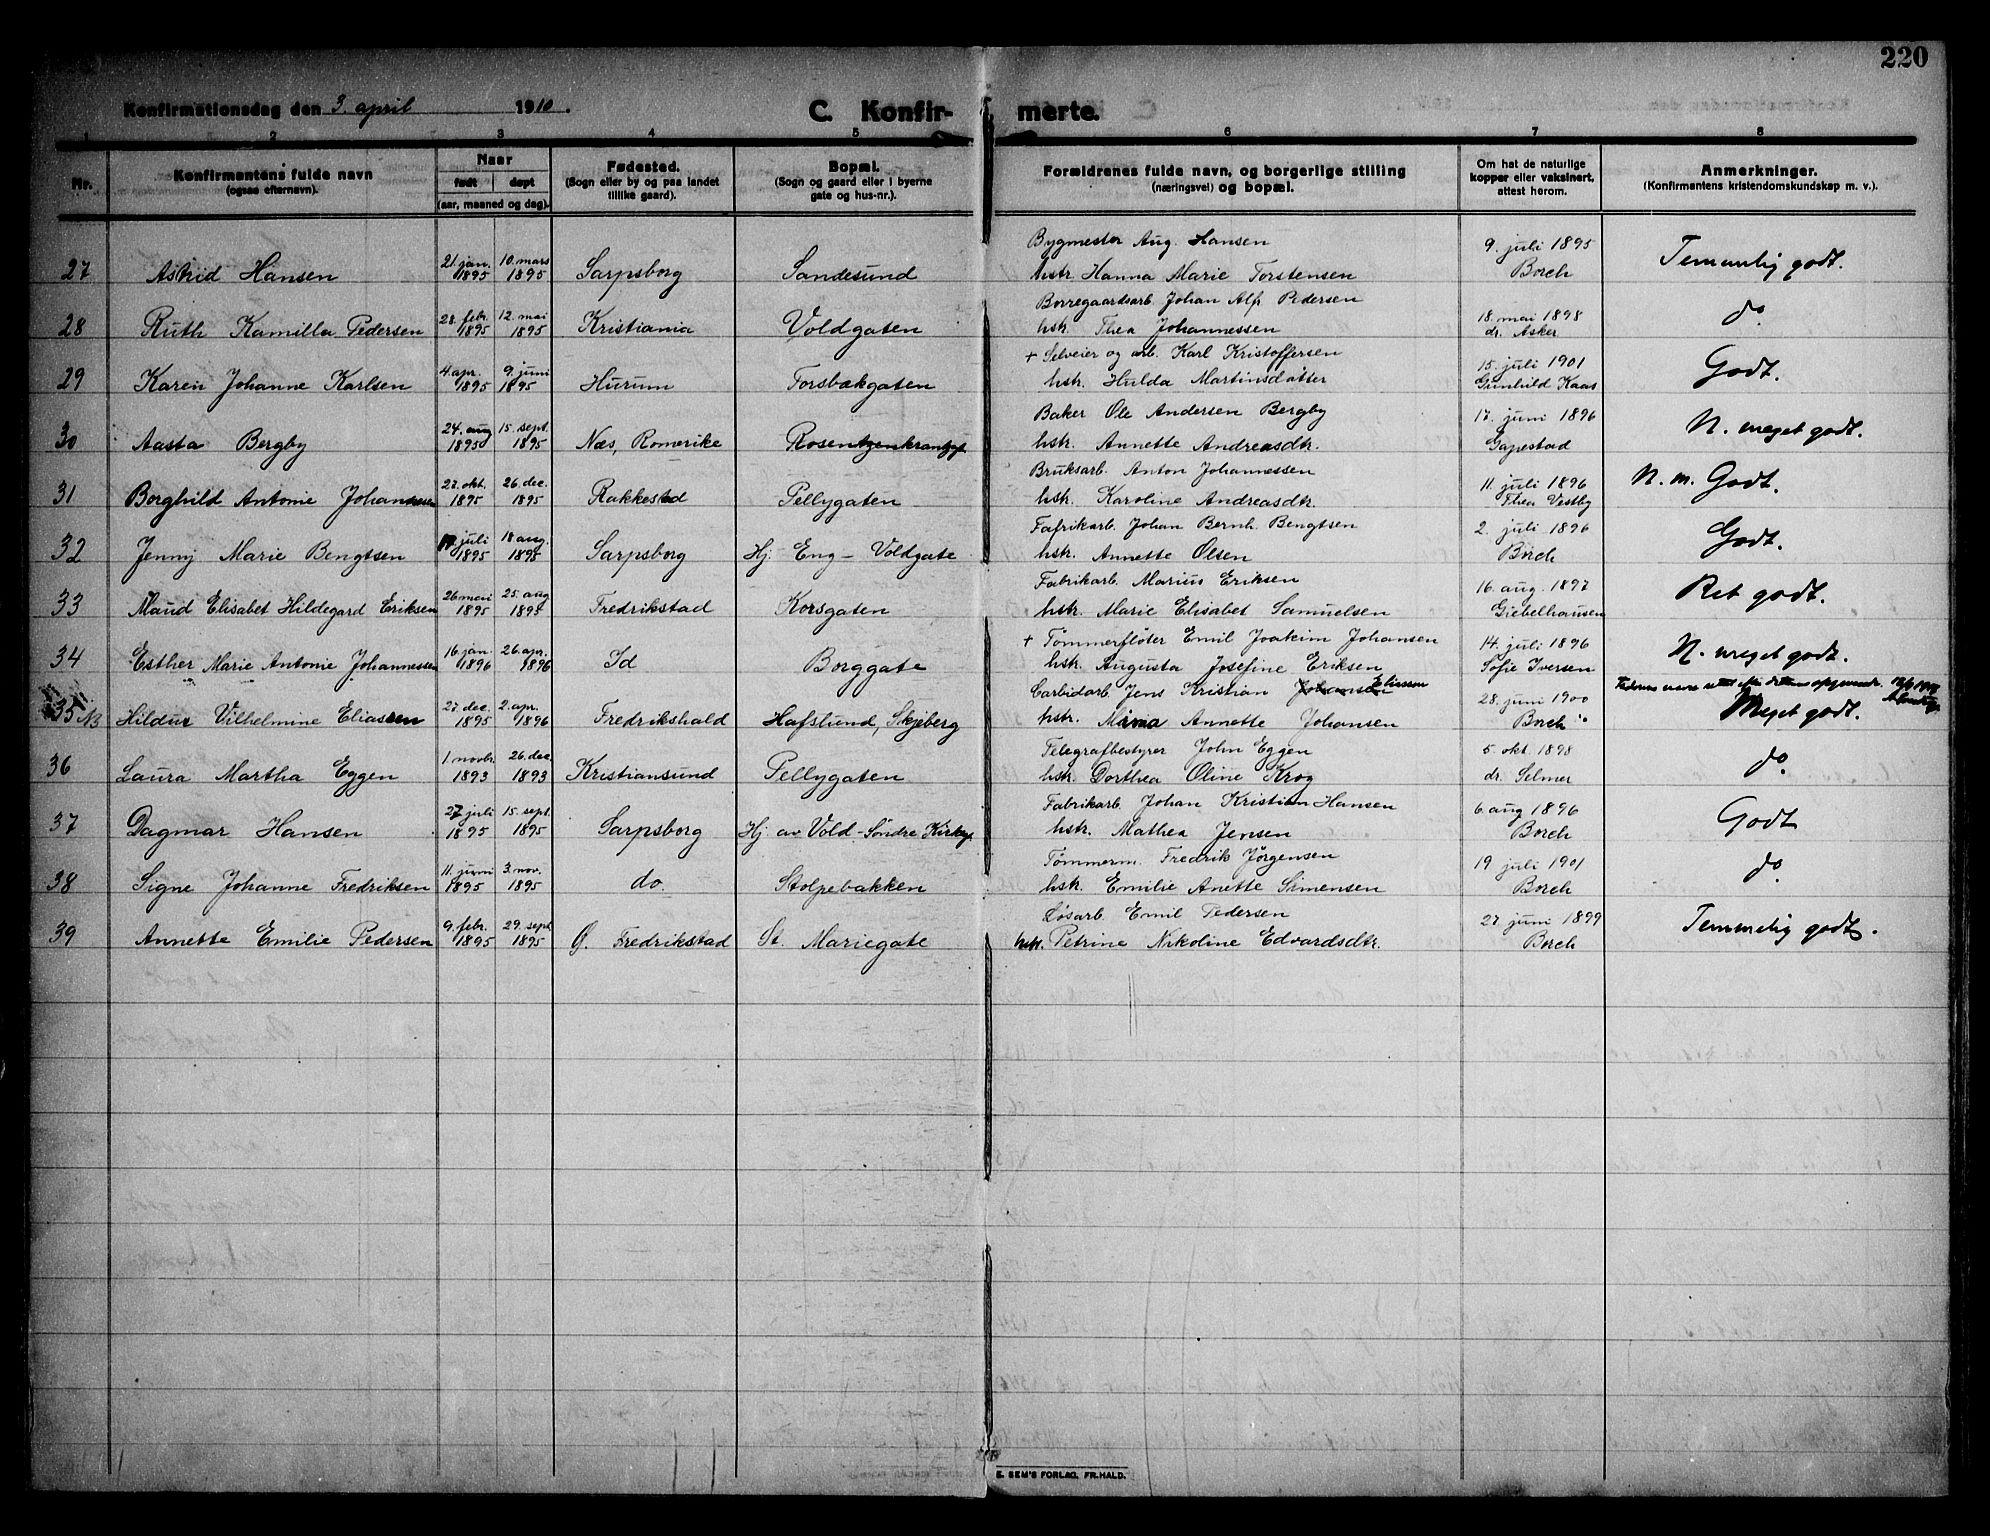 220
Konfirmationsdag den 3. april 1910.
C. Konfirmerte.
1 2 3 4 5 6 7 8
Nr.
Konfirmantens fulde navn
(ogsaa efternavn).
Naar
født døpt
(aar, maaned og dag).
Fødested.
(Sogn eller by og paa landet
tillike gaard).
Bopæl.
(Sogn og gaard eller i byerne
gate og hus-nr.).
Forældrenes fulde navn, og borgerlige stilling
(næringsvei) og bopæl.
Om hat de naturlige
kopper eller vaksinert,
attest herom.
Anmerkninger.
(Konfirmantens kristendomskundskap m. v.).
21. jan. 10. mars Bygmester Aug. Hansen 9. juli 1895
27 Astrid Hansen 1895 1895 Sarpsborg Sandesund hstr. Hanna Marie Torstensen Borch Temmelig godt.
28. febr. 12. mai Borregaardsarb. Johan Alf Pedersen 18. mai 1898
28 Ruth Kamilla Pedersen 1895 1895 Kristiania Voldgaten hstr. Thea Johannessen dr. Asker do
4. apr. 9. juni + Selveier og arb. Karl Kristoffersen 15. juli 1901
29 Karen Johanne Karlsen 1895 1895 Hurum Torsbækgaten hstr. Hulda Martinsdatter Gunhild Kaas Godt.
24. aug 15. sept. Baker Ole Andersen Bergby 17. juni 1896
30 Aasta Bergby 1895 1895 Næs, Romerike hstr. Annette Andreasdtr. Gapestad N. meget godt.
27. okt. 26. dec. Bruksarb. Anton Johannessen 11. juli 1896
31 Borghild Antonie Johansen 1895 1895 Rakkestad Pellygaten hstr. Karoline Andreasdtr. Thea Vestby N. m. Godt.
juli 18 aug. Fafrikarb. Johan Bernh. Bengtsen 2. juli 1896
32 Jenny Marie Bengtsen 1895 1895 Sarpsborg Hj. Eng - Voldgate hstr. Annette Olsen Borch Godt.
26 mai 25. aug Fabrikarb. Marius Eriksen 16. aug. 1897
33 Maud Elisabet Hildegard Eriksen 1895 1895 Fredrikstad Korsgaten hstr. Marie Elisabet Samuelsen Giebelhausen Ret godt.
16. jan. 26. apr. + Tømmerfløter Emil Joakim Johansen 14. juli 1896
34 Esther Marie Antonie Johannessen 1896 1896 Id Borggate hstr. Augusta Josefine Eriksen Sofie Iversen N. meget godt.
27. dec. 2. apr. Carbidarb. Jens Kristian Johansen Eliassen 28. juni 1900
35 NB Hildur Vilhelmine Eliassen 1895 1896 Fredrikshald Hafslund, Skjeberg hstr. Mina Annette Johansen Borch Meget godt.
1. novbr. 26. dec. Telegrafbestyrer John Eggen 5. okt. 1898
36 Laura Martha Eggen 1893 1893 Kristiansund Pellygaten hstr. Dorthea Oline Krog dr. Selmer do
27 juli 15. sept. Fabrikarb. Johan Kristian Hansen 6. aug 1896
37 Dagmar Hansen 1895 1895 Sarpsborg Hj. av Vold - Søndre Kirkegt. hstr. Mathea Jensen Borch Godt
11. juni 3. nov. Tømmerm. Fredrik Jørgensen 19 juli 1901
38 Signe Johanne Fredriksen 1895 1895 do. Stolpebakken hstr. Emilie Anette Simensen Borch do
9. febr. 29. sept Løsarb. Emil Pedersen 27. juni 1899
39 Annette Emilie Pedersen 1895 1895 Ø. Fredrikstad St. Mariegate hstr. Petrine Nikoline Edvardsdtr. Borch Temmelig godt.
E. SEM'S FORLAG, FR.HALD.